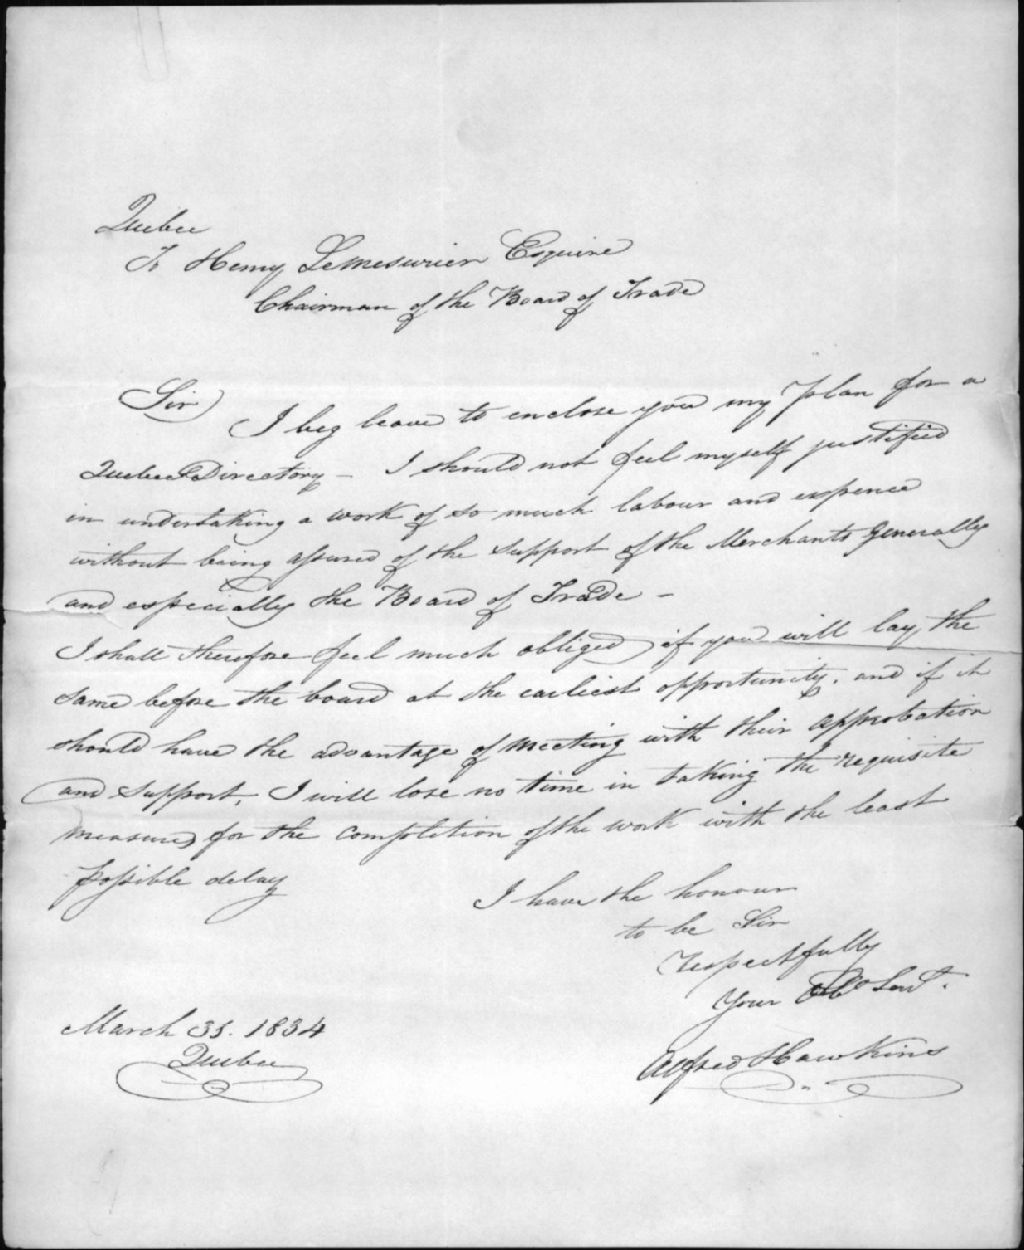 Quebec
To Henry Lemesurier Esquire
Chairman of the Board of Trade
Sir
I beg leave to enclose you my plan for a
Quebec Directory – I should not feel myself justified
in undertaking a work of so much labour and expence
without being assured of the support of the Merchants generally
and especially the Board of Trade –
I shall therefore feel much obliged if you will lay the
same before the board at the earliest opportunity. and if it
should have the advantage of meeting with their approbation
and support, I will lose no time in taking the requisite
measures for the completion of the work with the least
possible delay
I have the honour
to be Sir
respectfully
Your Obt Servt.
Alfred Hawkins
March 31. 1834
Quebec